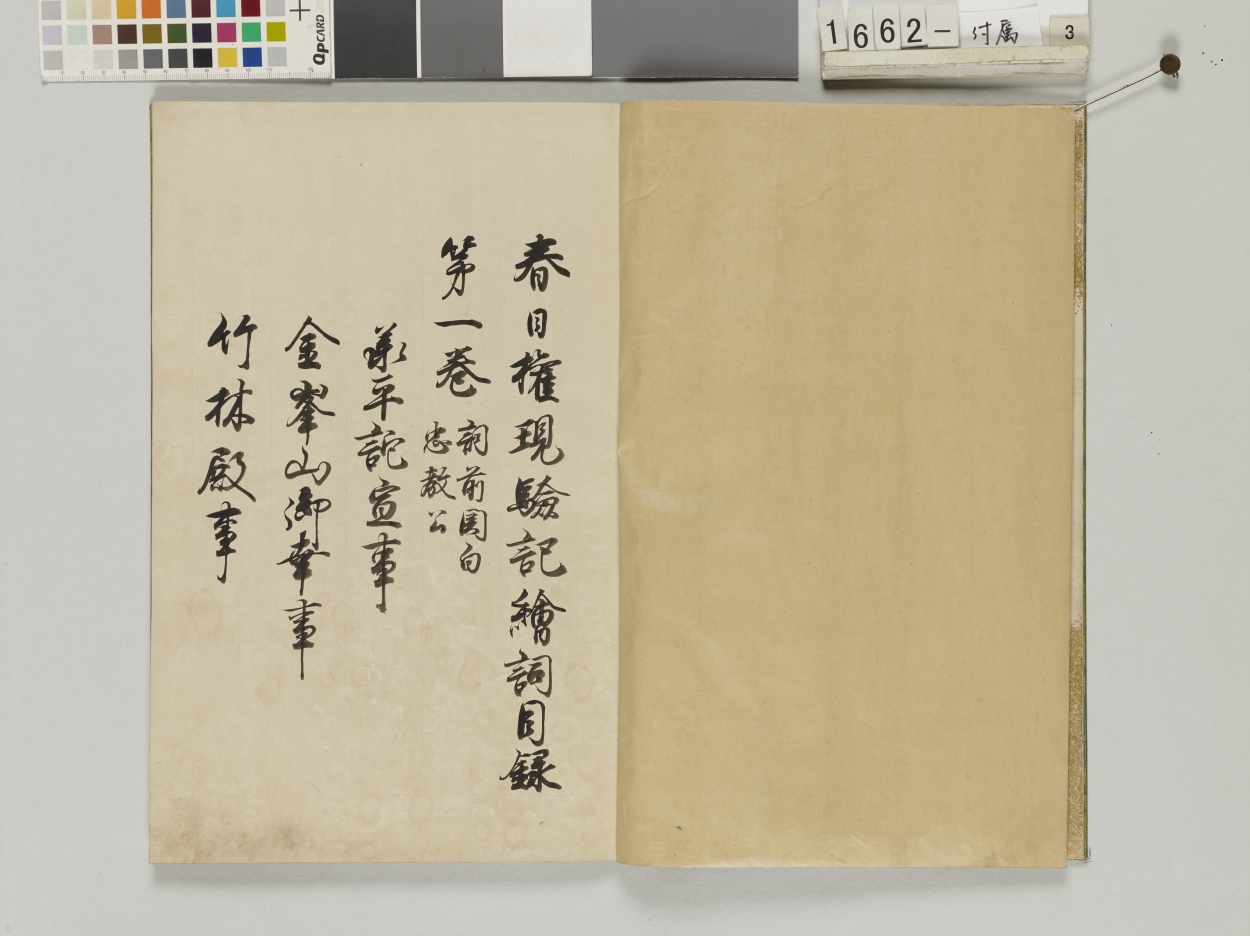 春日権現験記繪詞目録
第一巻
詞前関白
忠教公
承平託宣事
金峯山御幸事
竹林殿事
1662-付属 3
QPCARD 20